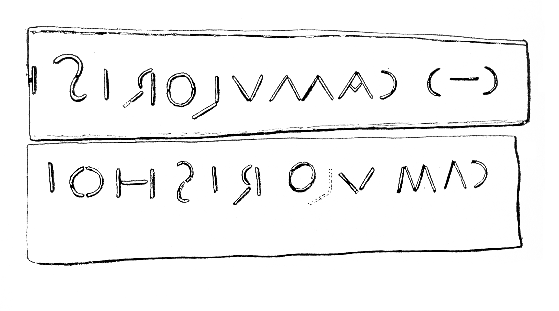 (-) CAMVLORIS
CAMVLORIS HOI